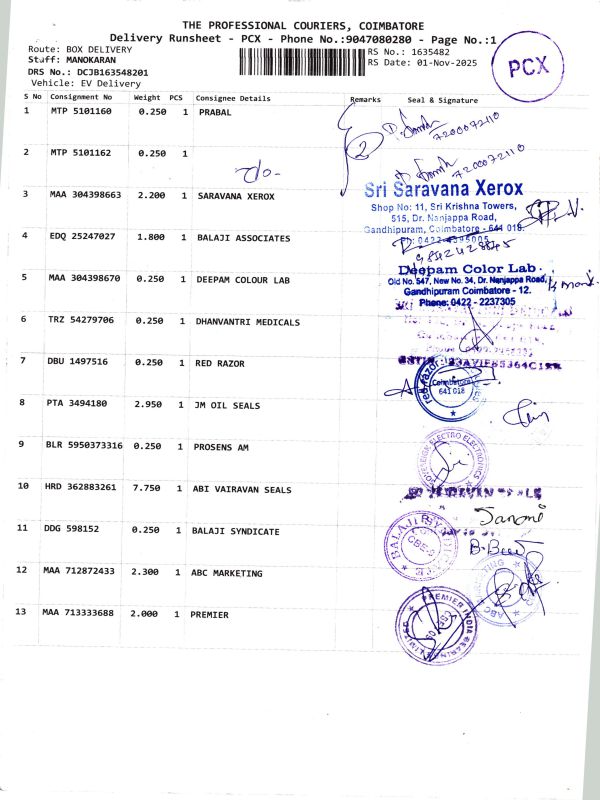 THE PROFESSIONAL COURIERS, COIMBATORE
Delivery Runsheet - PCX - Phone No.:9047080280 - Page No.:1
Route: BOX DELIVERY
RS No.: 1635482
Staff: MANOKARAN
RS Date: 01-Nov-2025
DRS No.: DCJB163548201
Vehicle: EV Delivery
PCX
S No Consignment No Weight PCS Consignee Details Remarks Seal & Signature
1 MTP 5101160 0.250 1 PRABAL
2
7200072110
2 MTP 5101162 0.250 1
7200072110
3 MAA 304398663 2.200 1 SARAVANA XEROX
Sri Saravana Xerox
Shop No: 11, Sri Krishna Towers,
515, Dr. Nanjappa Road,
Gandhipuram, Coimbatore - 641 018.
Ph: 0422-4395005
4 EDQ 25247027 1.800 1 BALAJI ASSOCIATES
5 MAA 304398670 0.250 1 DEEPAM COLOUR LAB
Deepam Color Lab.
Old No. 547, New No. 34, Dr. Nanjappa Road,
Gandhipuram Coimbatore - 12.
Phone: 0422 - 2237305
6 TRZ 54279706 0.250 1 DHANVANTRI MEDICALS
7 DBU 1497516 0.250 1 RED RAZOR
red razor
Coimbatore
641 018
8 PTA 3494180 2.950 1 JM OIL SEALS
9 BLR 5950373316 0.250 1 PROSENS AM
ELECTRO ELECTRONICS
10 HRD 362883261 7.750 1 ABI VAIRAVAN SEALS
11 DDG 598152 0.250 1 BALAJI SYNDICATE
BALAJI SYNDICATE
12 MAA 712872433 2.300 1 ABC MARKETING
13 MAA 713333688 2.000 1 PREMIER
PREMIER INDIA BEARING